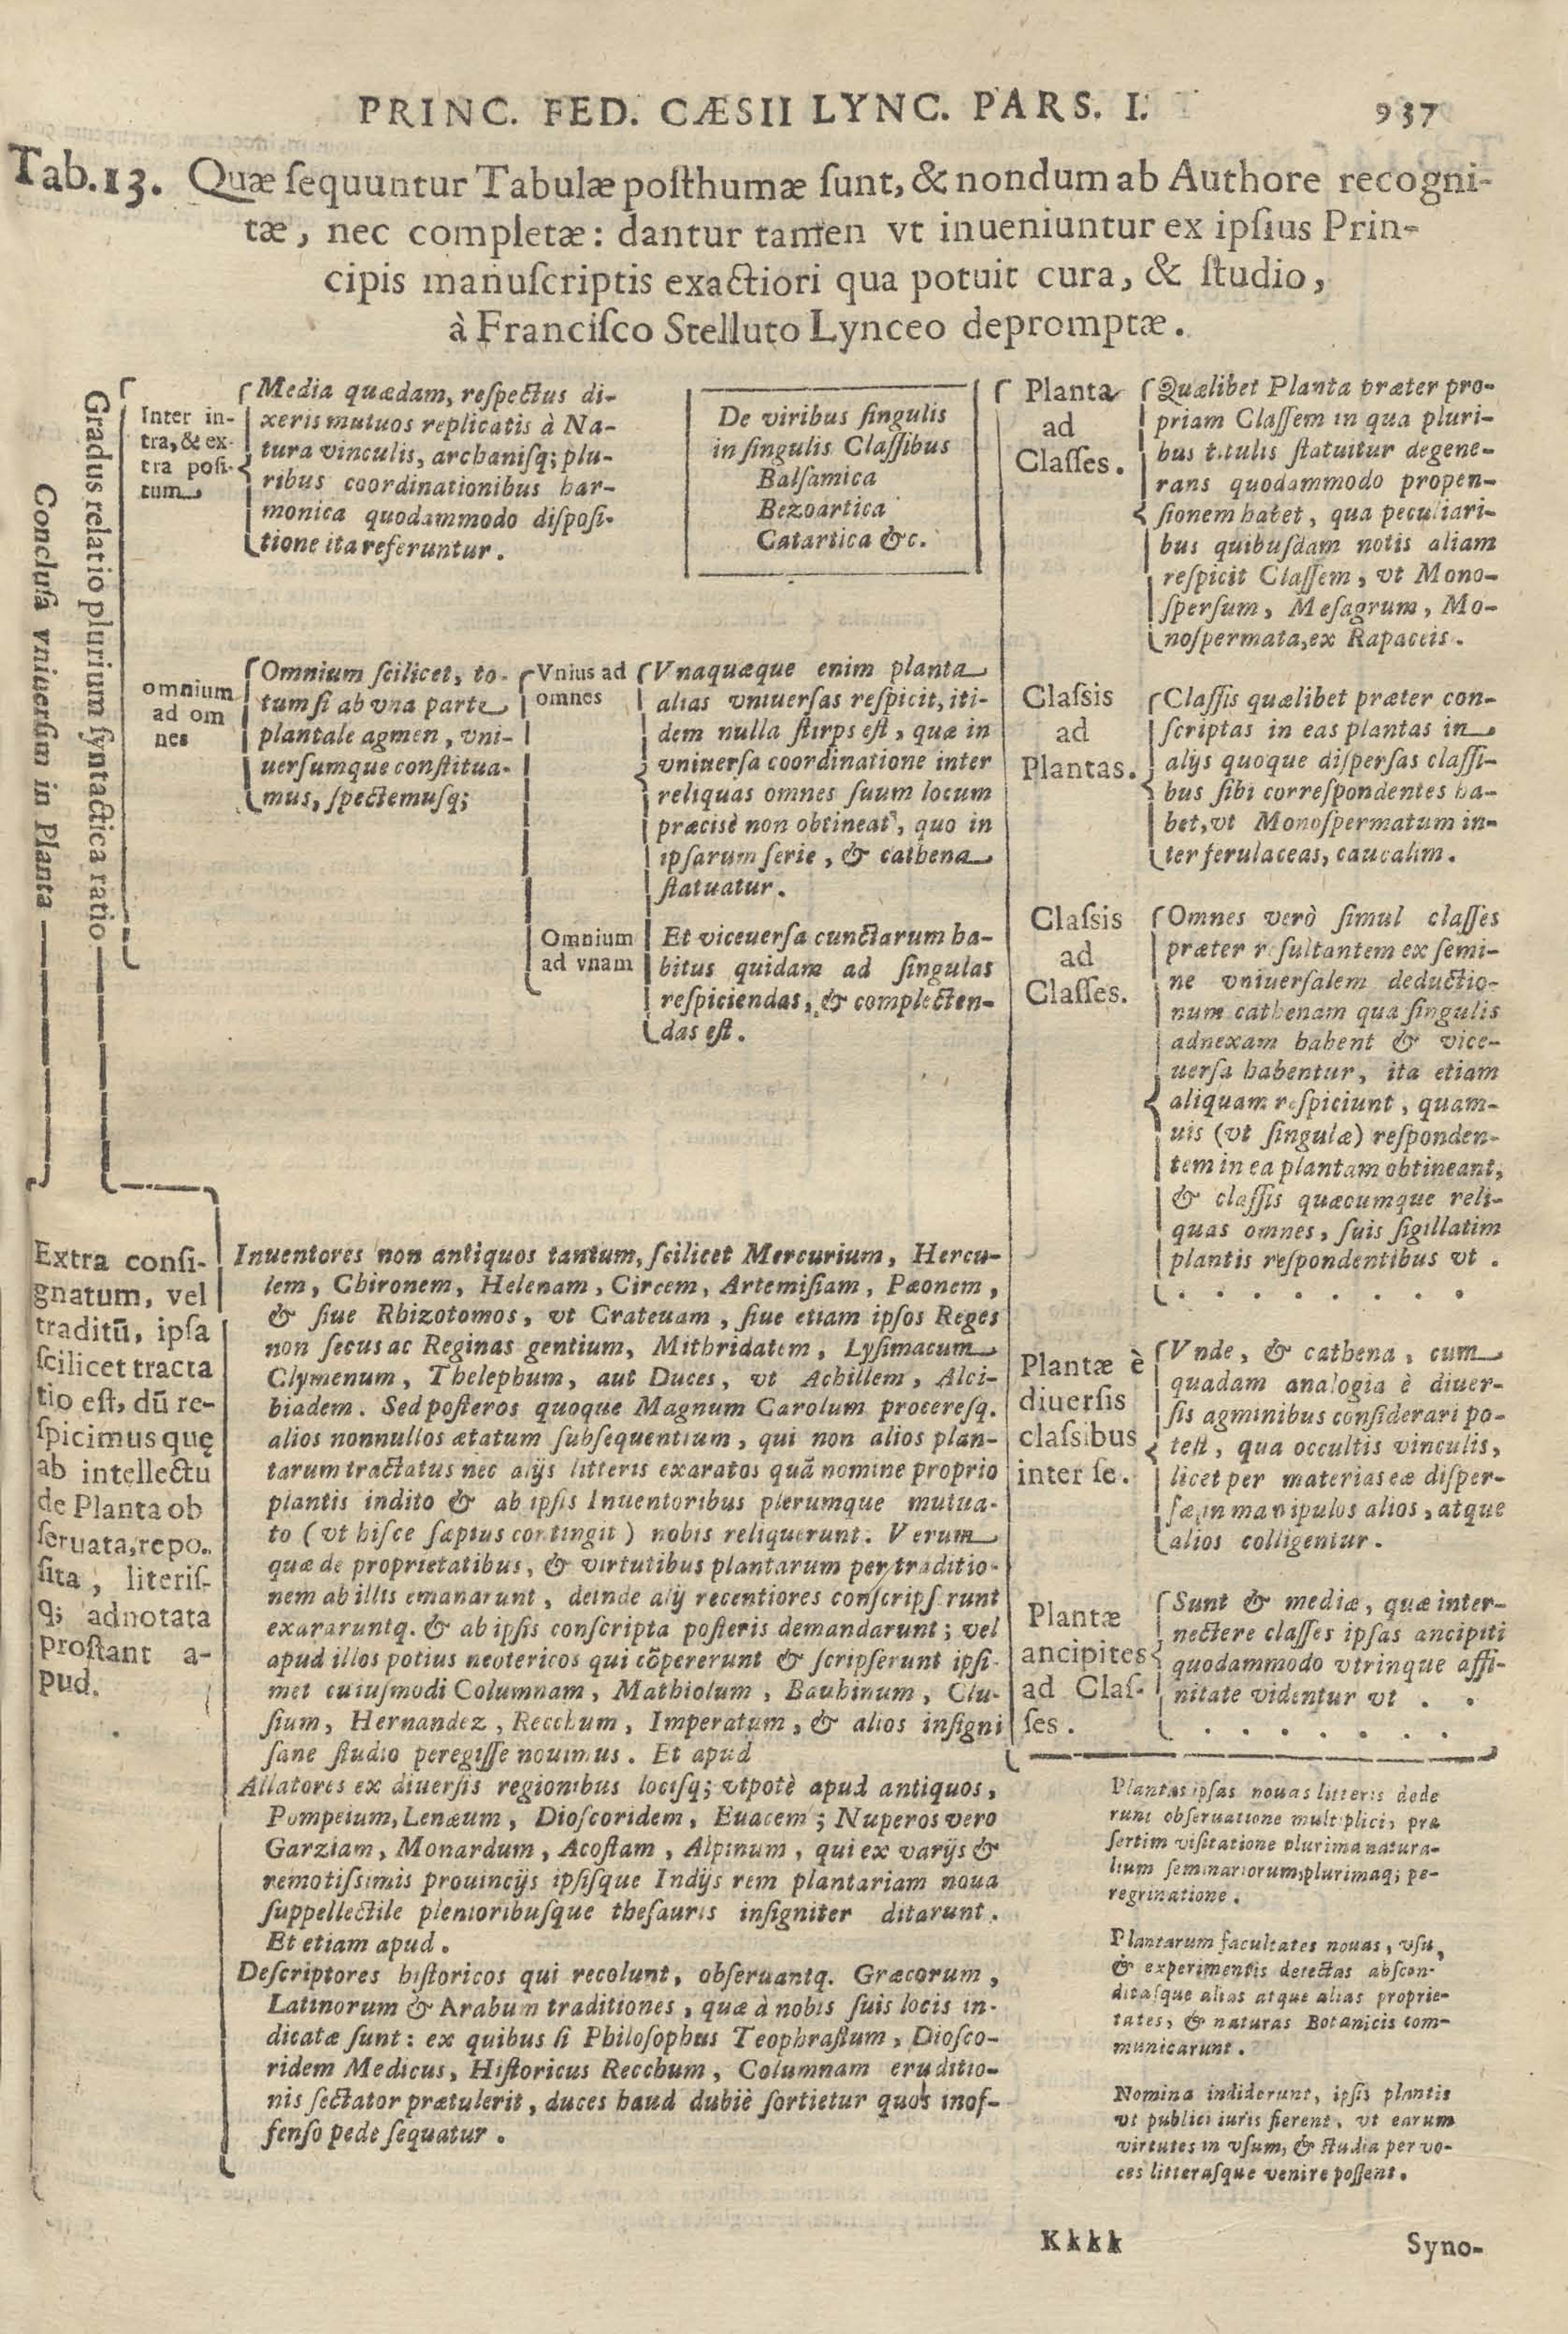 PRINC. FED. CÆSII LYNC. PARS. I. 937
Tab. 13. Quæ ſequuntur Tabulæ poſthumæ ſunt, & nondum ab Authore recogni-
tæ, nec completæ: dantur tamen vt inueniuntur ex ipſius Prin-
cipis manuſcriptis exactiori qua potuit cura, & ſtudio,
à Franciſco Stelluto Lynceo depromptæ.
Concluſa vniuerſim in Planta
Gradus relatio plurium ſyntactica ratio
Inter in-
tra, & ex-
tra poſi-
tum
Media quædam, reſpectus di-
xeris mutuos replicatis à Na-
tura vinculis, archaniſq; plu-
ribus coordinationibus har-
monica quodammodo diſpoſi-
tione ita referuntur.
De viribus ſingulis
in ſingulis Claſſibus
Balſamica
Bezoartica
Catartica &c.
omnium
ad om
nes
Omnium ſcilicet, to-
tum ſi ab vna parte
plantale agmen, vni-
uerſumque conſtitua-
mus, ſpectemuſq;
Vnius ad
omnes
Vnaquæque enim planta
alias vniuerſas reſpicit, iti-
dem nulla ſtirps eſt, quæ in
vniuerſa coordinatione inter
reliquas omnes ſuum locum
præcisè non obtineat, quo in
ipſarum ſerie, & cathena
ſtatuatur.
Omnium
ad vnam
Et viceuerſa cunctarum ha-
bitus quidam ad ſingulas
reſpiciendas, & complecten-
das eſt.
Planta
ad
Claſſes.
Quælibet Planta præter pro-
priam Claſſem in qua pluri-
bus titulis ſtatuitur degene-
rans quodammodo propen-
ſionem habet, qua peculiari-
bus quibuſdam notis aliam
reſpicit Claſſem, vt Mono-
ſperſum, Meſagrum, Mo-
noſpermata, ex Rapaceis.
Claſsis
ad
Plantas.
Claſſis quælibet præter con-
ſcriptas in eas plantas in
alijs quoque diſperſas claſſi-
bus ſibi correſpondentes ha-
bet, vt Monoſpermatum in-
ter ferulaceas, caucalim.
Claſsis
ad
Claſſes.
Omnes verò ſimul claſſes
præter reſultantem ex ſemi-
ne vniuerſalem deductio-
num cathenam qua ſingulis
adnexam habent & vice-
uerſa habentur, ita etiam
aliquam reſpiciunt, quam-
uis (vt ſingulæ) reſponden-
tem in ea plantam obtineant,
& claſſis quæcumque reli-
quas omnes, ſuis ſigillatim
plantis reſpondentibus vt .
. . . . . . . .
Plantæ è
diuerſis
claſsibus
inter ſe.
Vnde, & cathena, cum
quadam analogia è diuer-
ſis agminibus conſiderari po-
teſt, qua occultis vinculis,
licet per materias eæ diſper-
ſæ, in manipulos alios, atque
alios colligentur.
Plantæ
ancipites
ad Claſ-
ſes.
Sunt & mediæ, quæ inter-
nectere claſſes ipſas ancipiti
quodammodo vtrinque affi-
nitate videntur vt . .
. . . . . . .
Extra conſi-
gnatum, vel
traditū, ipſa
ſcilicet tracta
tio eſt, dū re-
ſpicimus quę
ab intellectu
de Planta ob
ſeruata, repo-
ſita, literiſ-
q; adnotata
proſtant a-
pud.
Inuentores non antiquos tantum, ſcilicet Mercurium, Hercu-
lem, Chironem, Helenam, Circem, Artemiſiam, Pæonem,
& ſiue Rhizotomos, vt Crateuam, ſiue etiam ipſos Reges
non ſecus ac Reginas gentium, Mithridatem, Lyſimacum
Clymenum, Thelephum, aut Duces, vt Achillem, Alci-
biadem. Sed poſteros quoque Magnum Carolum procereſq.
alios nonnullos ætatum ſubſequentium, qui non alios plan-
tarum tractatus nec alijs litteris exaratos quā nomine proprio
plantis indito & ab ipſis Inuentoribus plerumque mutua-
to (vt hiſce ſæpius contingit) nobis reliquerunt. Verum
quæ de proprietatibus, & virtutibus plantarum per traditio-
nem ab illis emanarunt, deinde alij recentiores conſcripſerunt
exararuntq. & ab ipſis conſcripta poſteris demandarunt; vel
apud illos potius neotericos qui cōpererunt & ſcripſerunt ipſi-
met cuiuſmodi Columnam, Mathiolum, Bauhinum, Clu-
ſium, Hernandez, Recchum, Imperatum, & alios inſigni
ſane ſtudio peregiſſe nouimus. Et apud
Allatores ex diuerſis regionibus lociſq; vtpotè apud antiquos,
Pompeium, Lenæum, Dioſcoridem, Euacem; Nuperos vero
Garziam, Monardum, Acoſtam, Alpinum, qui ex varijs &
remotiſsimis prouincijs ipſiſque Indijs rem plantariam noua
ſuppellectile plenioribuſque theſauris inſigniter ditarunt.
Et etiam apud.
Deſcriptores hiſtoricos qui recolunt, obſeruantq. Græcorum,
Latinorum & Arabum traditiones, quæ à nobis ſuis locis in-
dicatæ ſunt: ex quibus ſi Philoſophus Teophraſtum, Dioſco-
ridem Medicus, Hiſtoricus Recchum, Columnam eruditio-
nis ſectator prætulerit, duces haud dubiè ſortietur quos inof-
fenſo pede ſequatur.
Plantas ipſas nouas litteris dede
runt obſeruatione multiplici, præ
ſertim viſitatione plurima natura-
lium ſeminariorum, plurimaq; pe-
regrinatione.
Plantarum facultates nouas, vſu,
& experimentis detectas abſcon-
ditaſque alias atque alias proprie-
tates, & naturas Botanicis com-
municarunt.
Nomina indiderunt, ipſis plantis
vt publici iuris fierent, vt earum
virtutes in vſum, & ſtudia per vo-
ces litteraſque venire poſſent.
Kkkk Syno-